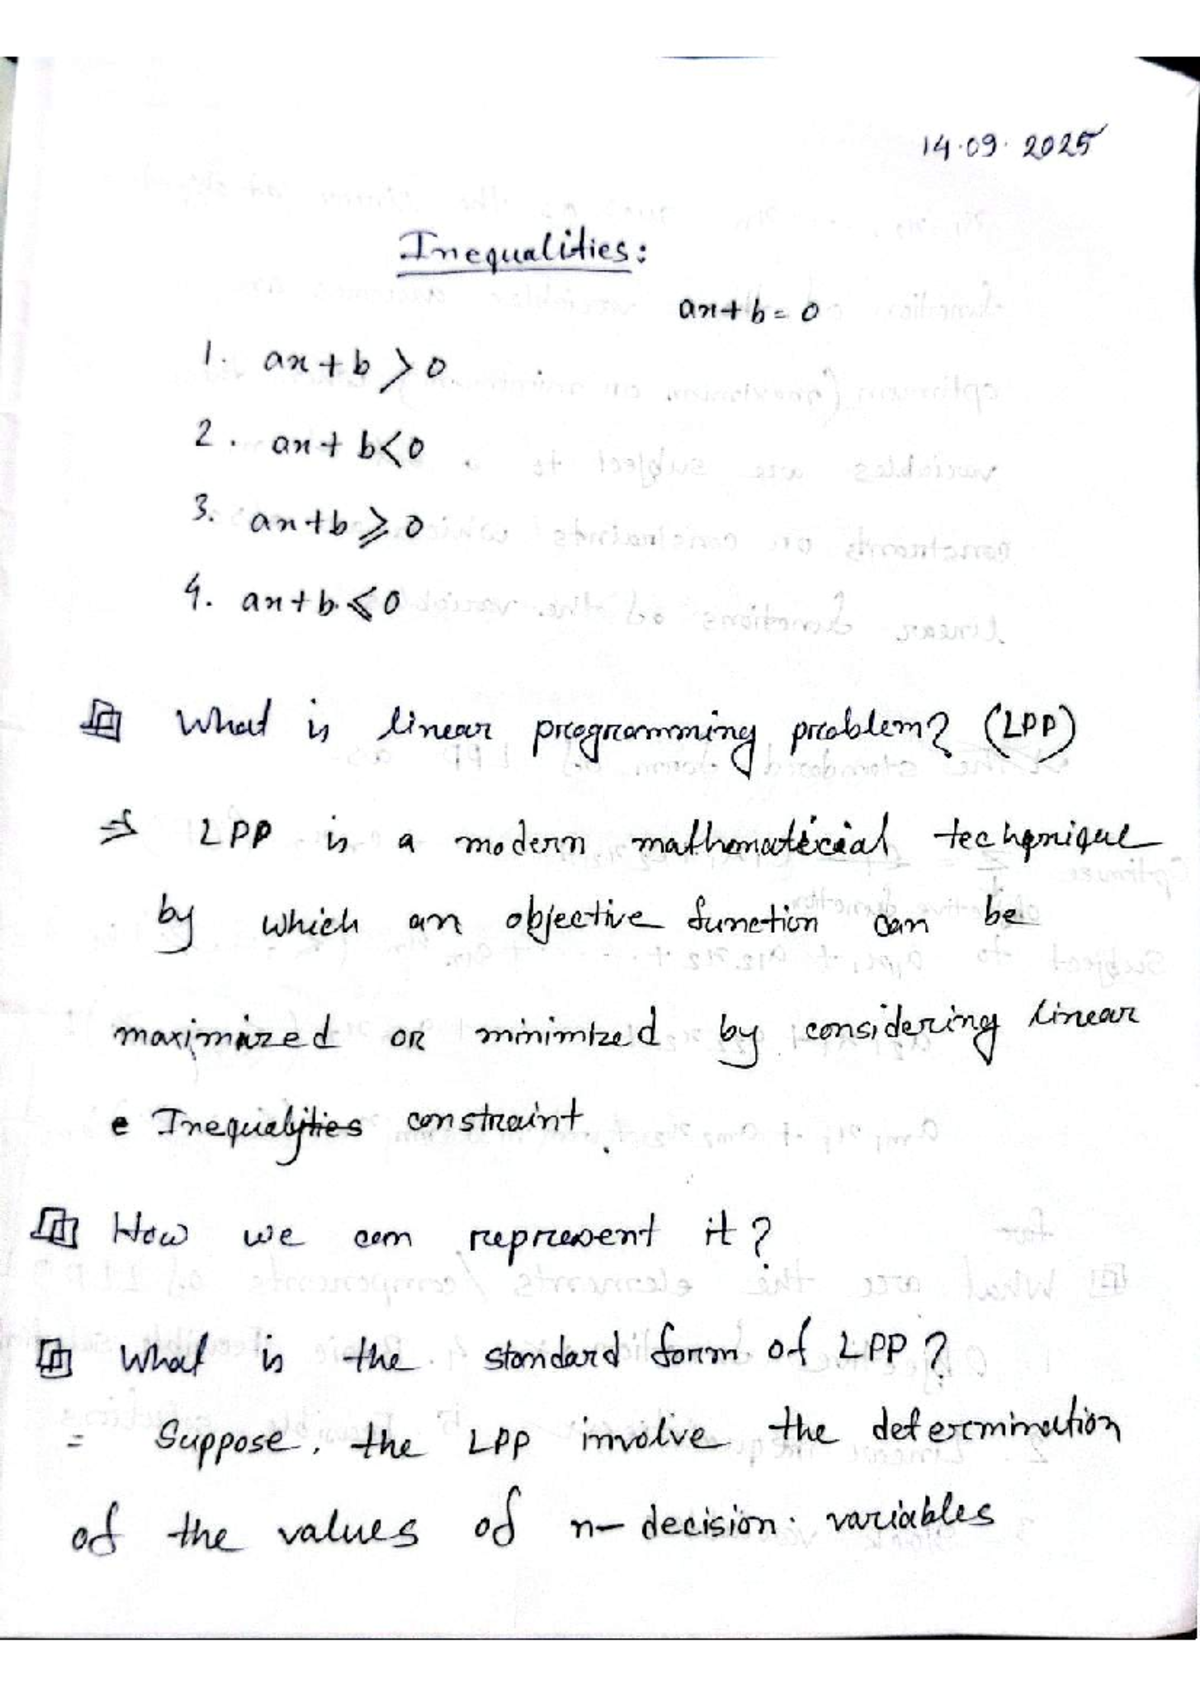 14.09.2025
Inequalities:
ax+b=0
1. ax+b>0
2. ax+b<0
3. ax+b⩾0
4. ax+b⩽0
What is linear programming problem? (LPP)
⇒ LPP is a modern mathematical technique
by which an objective function can be
maximized or minimized by considering linear
Inequalities constraint.
How we can represent it?
What is the standard form of LPP?
= Suppose, the LPP involve the determination
of the values of n-decision variables